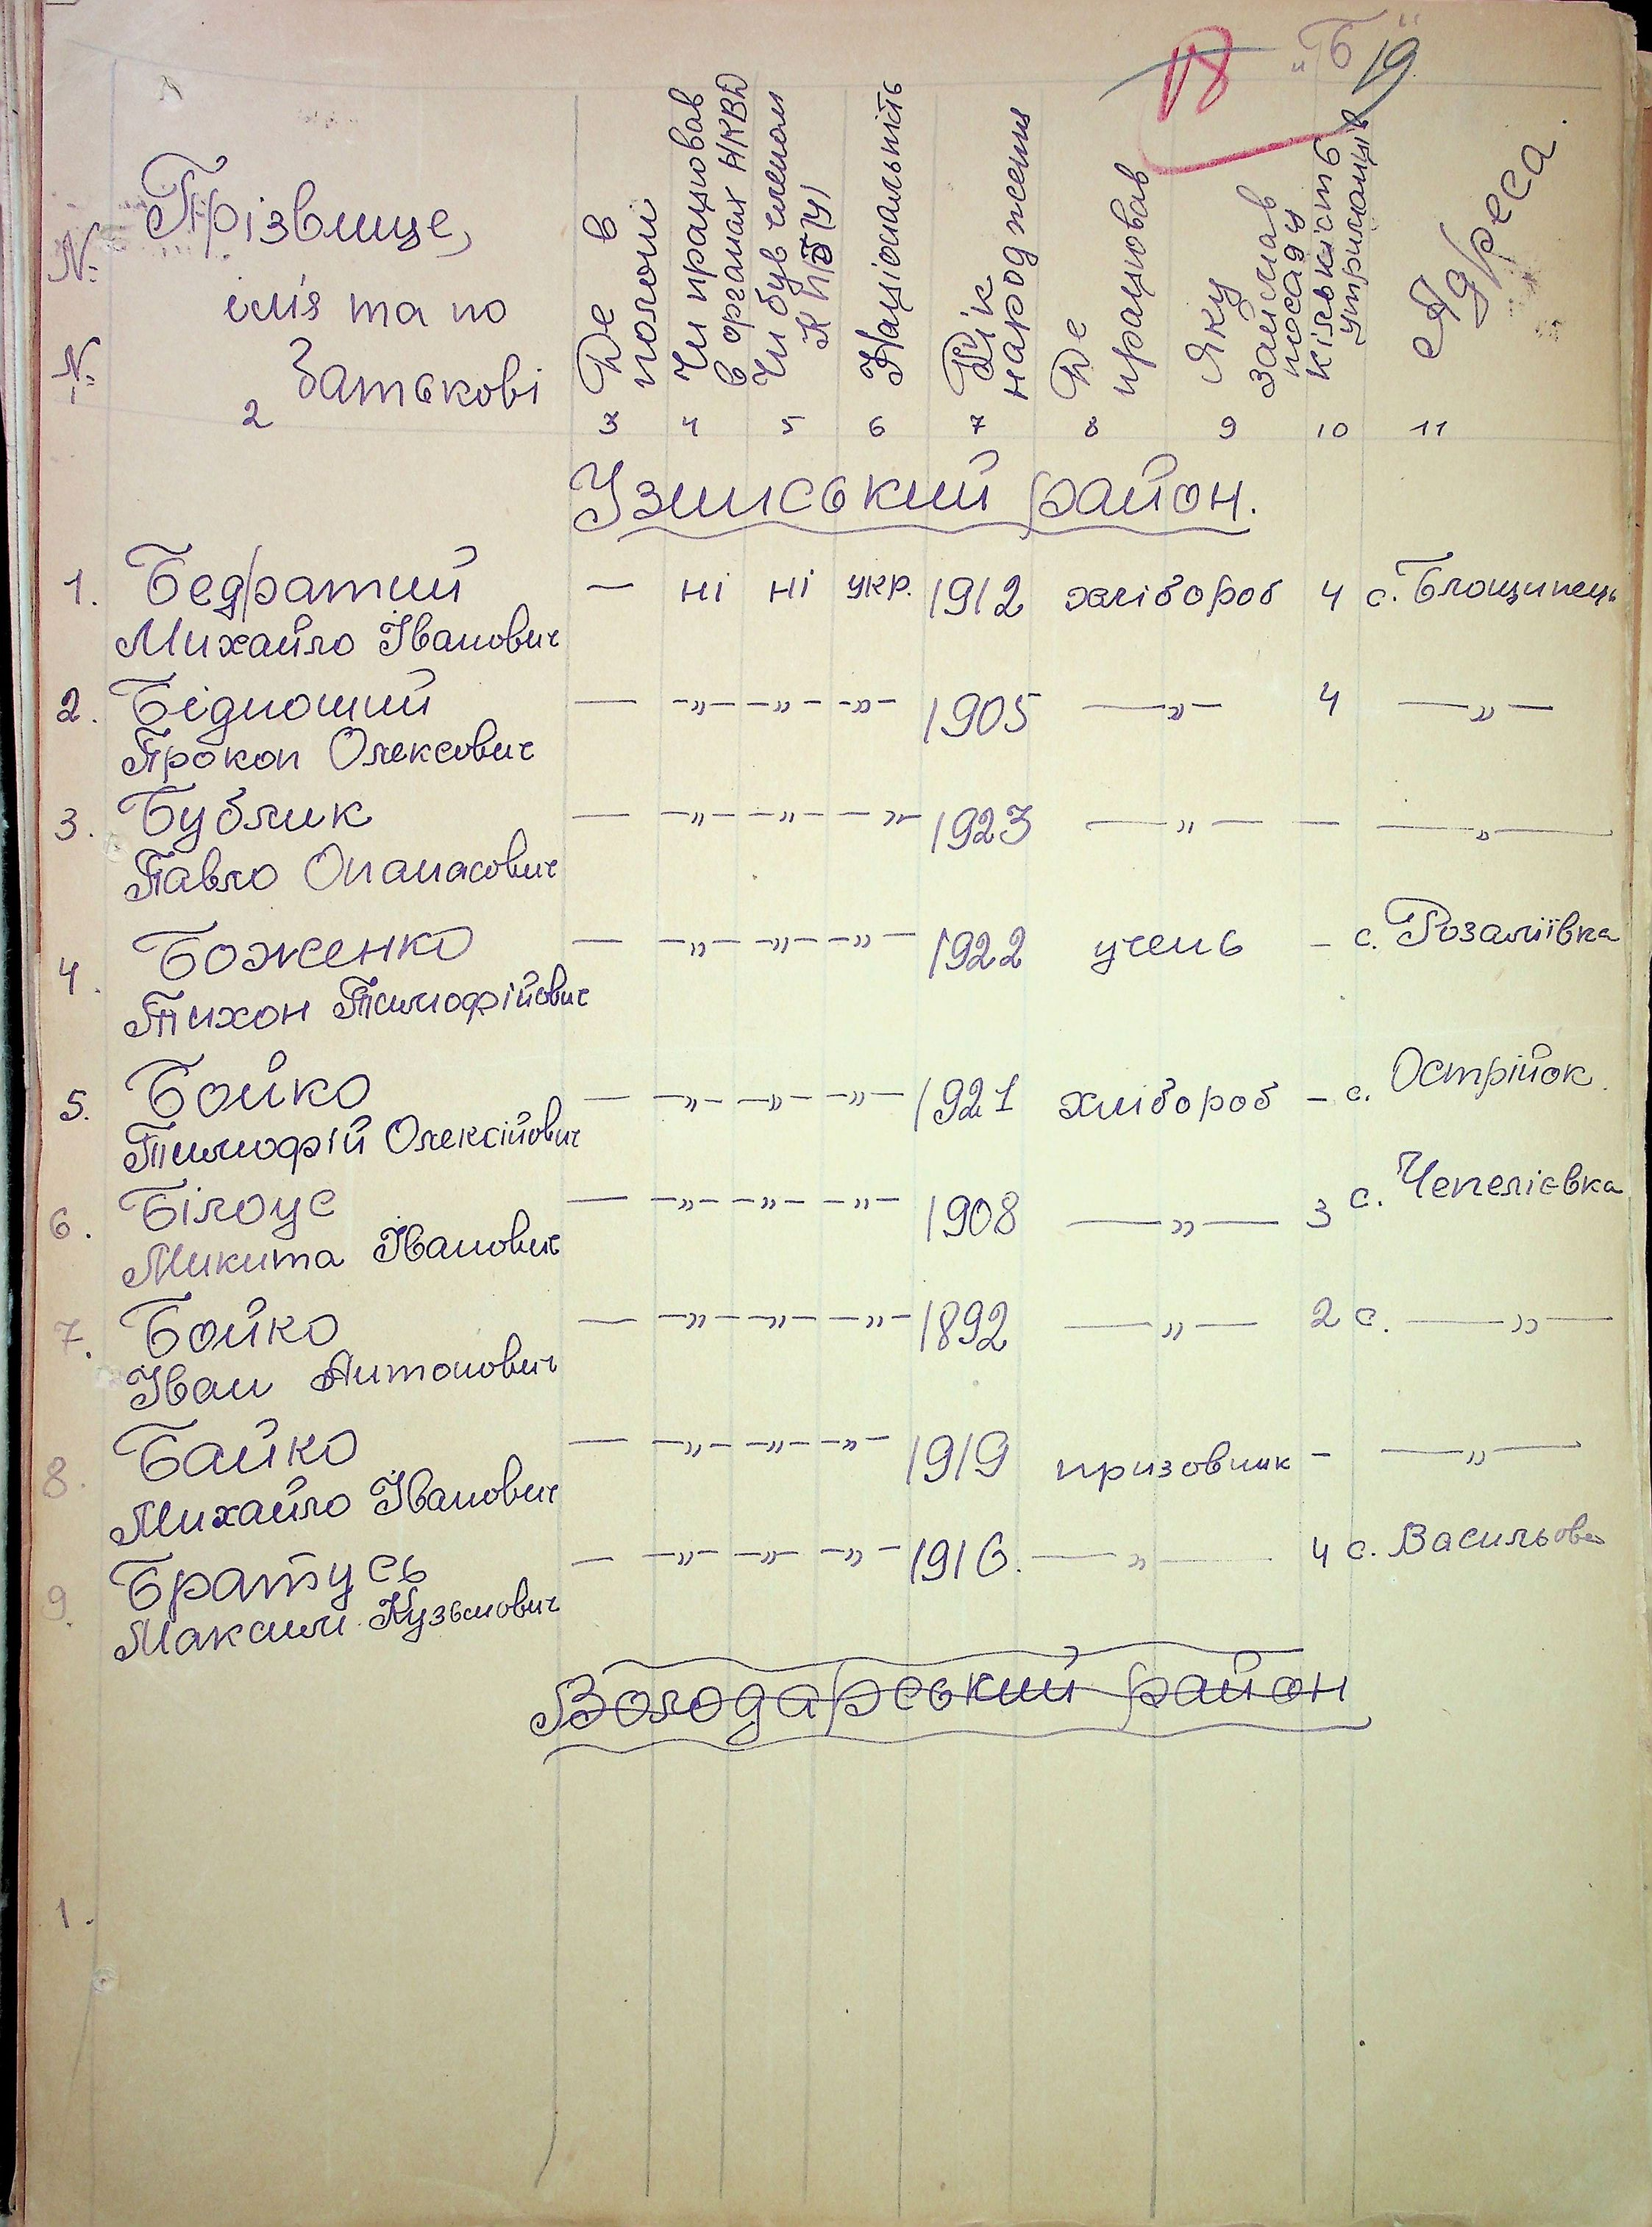 18 „Б" 19
№ №
Прізвище,
імʼя та по
Батькові
Де в полоні
Чи працював в органах НКВД
Чи був членом КП(б)У
Національність
Рік народження
Де працював
Яку займав посаду
Кількість утриманців
Адреса.
1 2 3 4 5 6 7 8 9 10 11
Узинський район.
1. Бедратий — ні ні укр. 1912 хлібороб 4 с. Блощинець
Михайло Іванович
2. Бідноший — —„— —„— —„— 1905 —„— 4 —„—
Прокоп Олексович
3. Бублик — —„— —„— —„— 1923 —„— — —„—
Павло Опанасович
4. Боженко — —„— —„— —„— 1922 учень — с. Розаліївка
Тихон Тимофійович
5. Бойко — —„— —„— —„— 1921 хлібороб — с. Острійок
Тимофій Олексійович
6. Білоус — —„— —„— —„— 1908 —„— 3 с. Чепелієвка
Микита Іванович
7. Бойко — —„— —„— —„— 1892 —„— 2 с. —„—
Іван Антонович
8. Байко — —„— —„— —„— 1919 призовник — —„—
Михайло Іванович
9. Братусь — —„— —„— —„— 1916. —„— 4 с. Васильов
Максим Кузьмович
Володарський район
1.